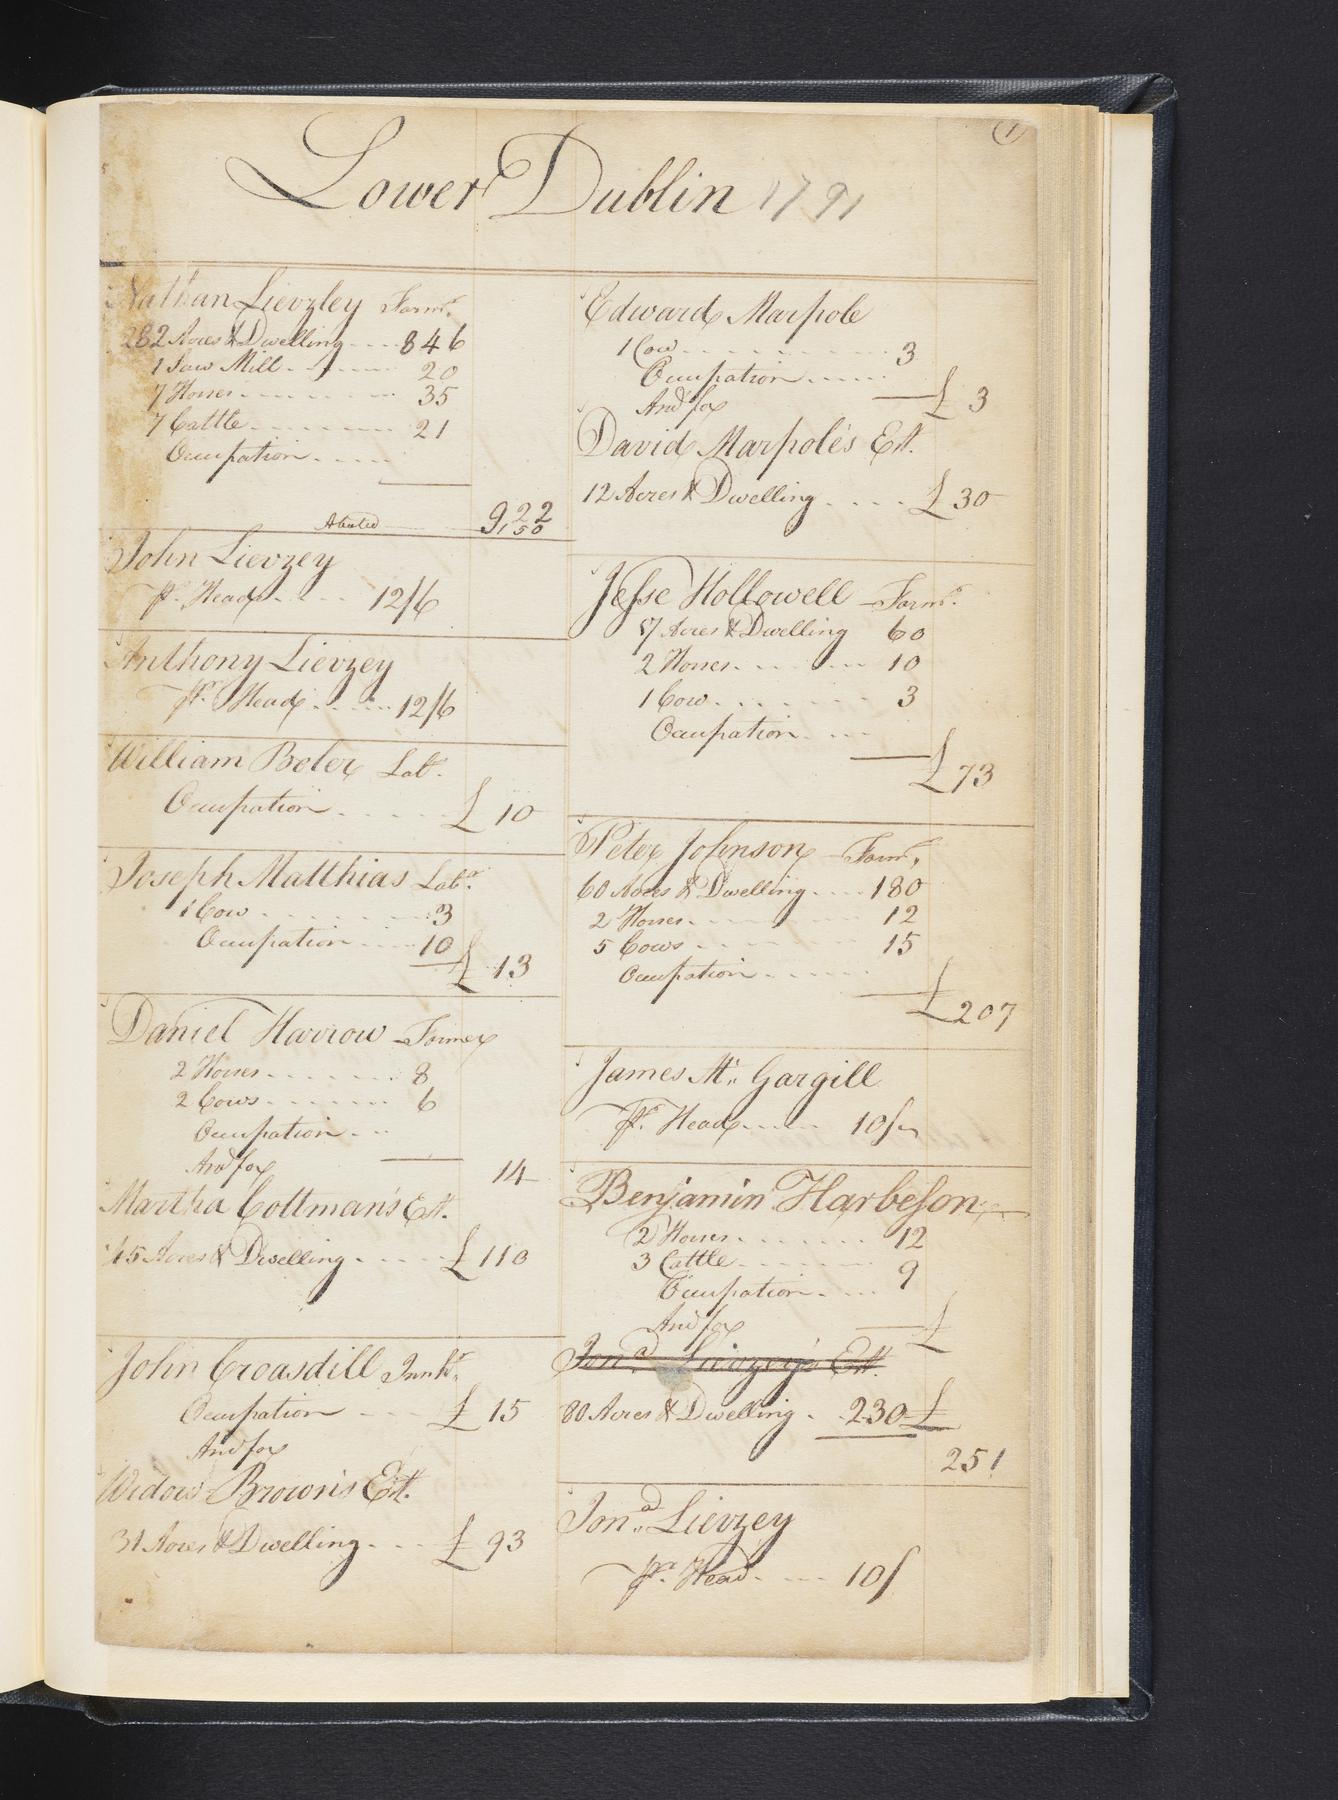 1
Lower Dublin 1791
Nathan Lievzley Farmr.
282 Acres & Dwelling .... 846
1 Saw Mill ..... 20
7 Horses ..... 35
7 Cattle ..... 21
Occupation ....
Abated 922
150
John Lievzey
pr. Head .... 12/6
Anthony Lievzey
pr. Head .... 12/6
William Boler Labr.
Occupation ..... £ 10
Joseph Matthias Labr.
1 Cow ..... 3
Occupation .... 10
£ 13
Daniel Harrow Farmer
2 Horses ..... 8
2 Cows ..... 6
Occupation ...
And for 14
Martha Cottman's Est.
45 Acres & Dwelling .... £ 110
John Croasdill Innkr.
Occupation ... £ 15
And for
Widow Brown's Est.
31 Acres & Dwelling ... £ 93
Edward Marpole
1 Cow ..... 3
Occupation .....
And for £ 3
David Marpole's Est.
12 Acres & Dwelling .... £ 30
Jesse Hollowell Farmr.
17 Acres & Dwelling 60
2 Horses ..... 10
1 Cow ..... 3
Occupation ....
£ 73
Peter Johnson Farmr.
60 Acres & Dwelling .... 180
2 Horses ..... 12
5 Cows ..... 15
Occupation ....
£ 207
James Mc. Gargill
pr. Head ..... 10/
Benjamin Harbeson
2 Horses ..... 12
3 Cattle ..... 9
Occupation ....
And for £
Jona. Lievzey's Est.
80 Acres & Dwelling . 230 £
251
Jona. Lievzey
pr. Head .... 10/